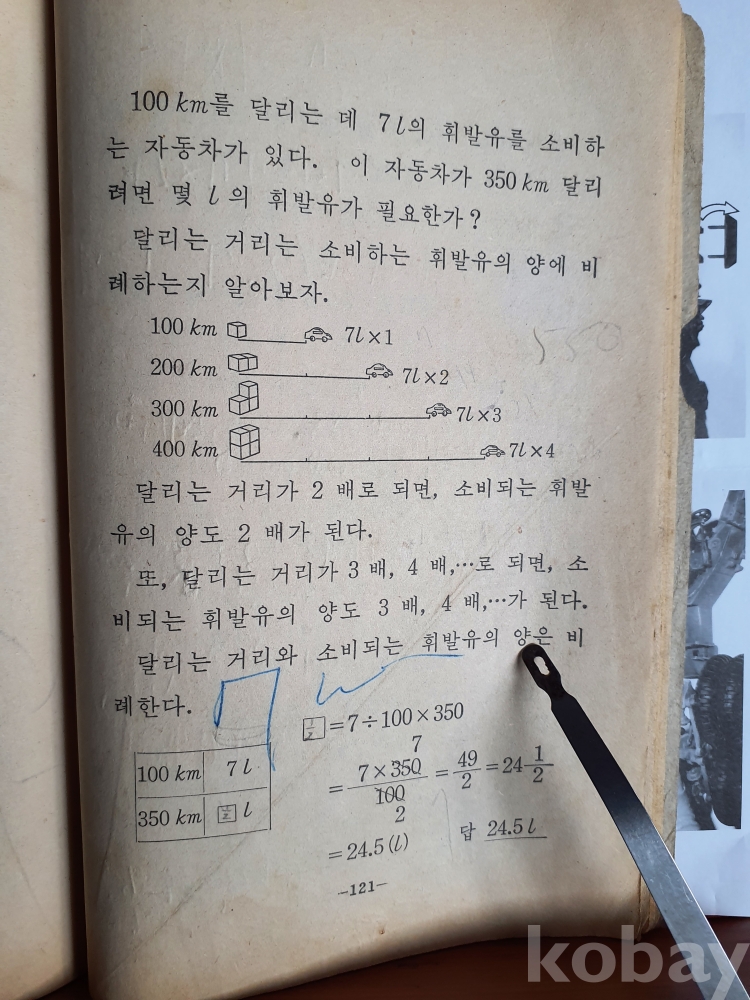 100 km를 달리는 데 7 l의 휘발유를 소비하
는 자동차가 있다. 이 자동차가 350 km 달리
려면 몇 l 의 휘발유가 필요한가?
달리는 거리는 소비하는 휘발유의 양에 비
례하는지 알아보자.
100 km 7l×1
200 km 7l×2
300 km 7l×3
400 km 7l×4
550
달리는 거리가 2 배로 되면, 소비되는 휘발
유의 양도 2 배가 된다.
또, 달리는 거리가 3 배, 4 배,…로 되면, 소
비되는 휘발유의 양도 3 배, 4 배,…가 된다.
달리는 거리와 소비되는 휘발유의 양은 비
례한다.
100 km 7 l
350 km □ l
□=7÷100×350
= 7×350/100 = 49/2 = 24 1/2
7
2
=24.5(l)
답 24.5 l
—121—
kobay